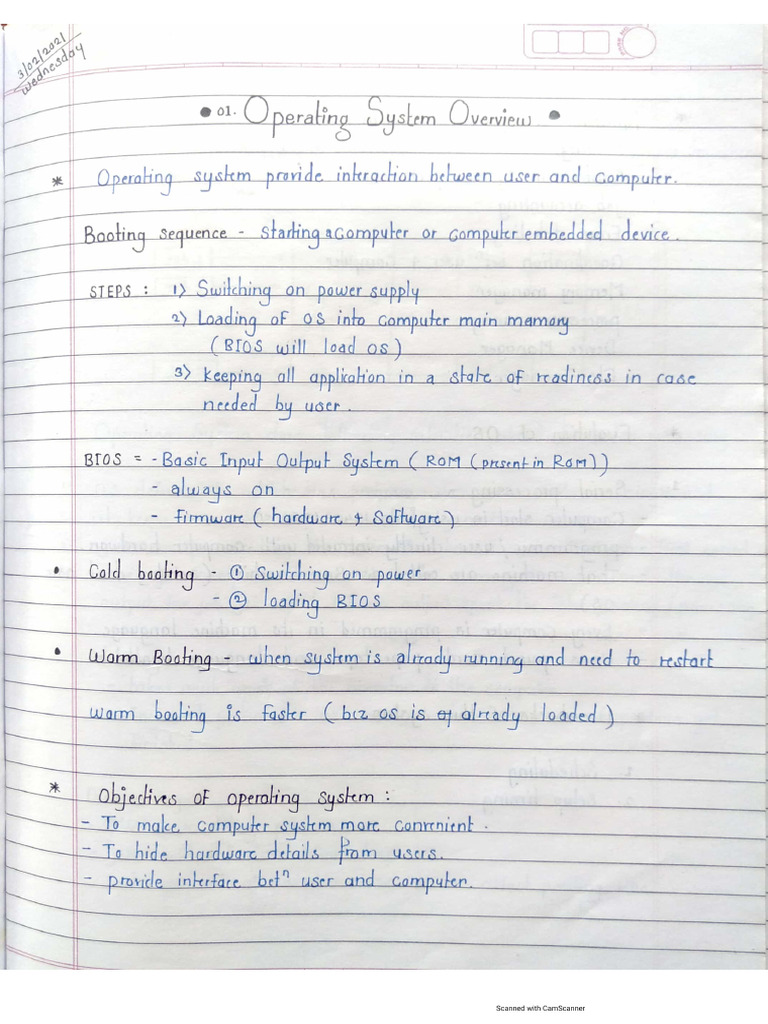 3/02/2021
Wednesday
• 01. Operating System Overview •
* Operating system provide interaction between user and computer.
Booting sequence - Starting a computer or computer embedded device.
STEPS : 1) Switching on power supply
2) Loading of OS into computer main memory
(BIOS will load OS)
3) keeping all application in a state of readiness in case
needed by user.
BIOS = - Basic Input Output System ( ROM (present in ROM))
- always on
- firmware ( hardware & Software)
• Cold booting - ① Switching on power
- ② loading BIOS
• Warm Booting - when system is already running and need to restart
Warm booting is faster ( bcz OS is already loaded )
* Objectives of operating system :
- To make computer system more convenient.
- To hide hardware details from users.
- provide interface betⁿ user and computer.
Scanned with CamScanner